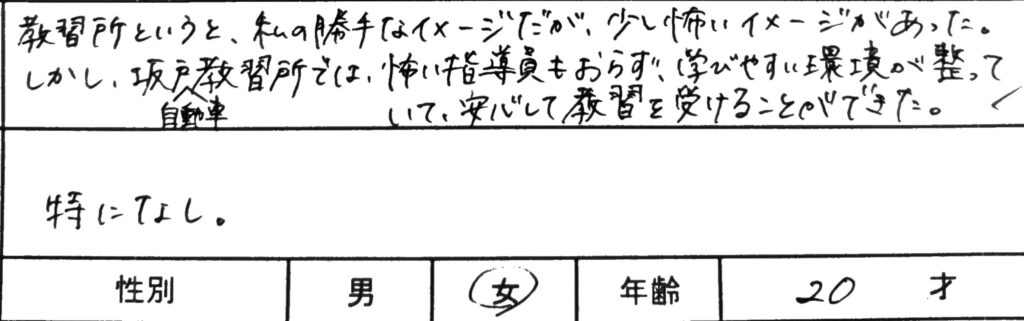 教習所というと、私の勝手なイメージだが、少し怖いイメージがあった。
しかし、坂戸教習所では、怖い指導員もおらず、学びやすい環境が整って
自動車
いて、安心して教習を受けることができた。
特になし。
性別 男 女 年齢 20 才